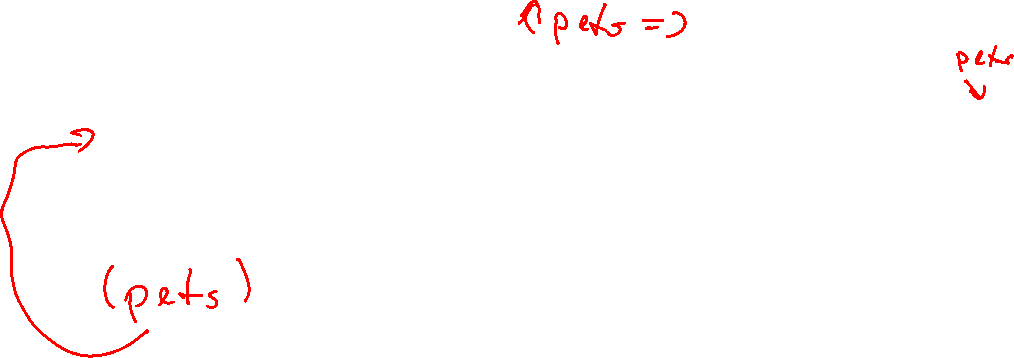 (pets =>
pets
(pets)